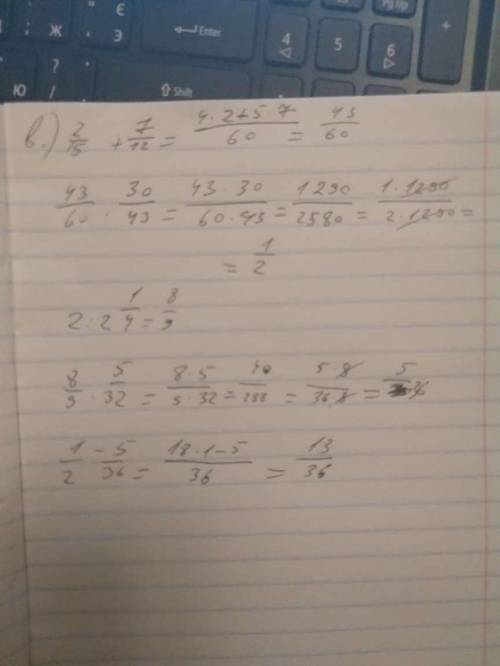 Є
Ж
Э
Enter
4
5
6
+
Pg Up
?
Ю
/
Shift
в.) 2/15 + 7/12 = (4·2+5·7)/60 = 43/60
43/60 · 30/43 = (43·30)/(60·43) = 1290/2580 = (1·1290)/(2·1290) =
= 1/2
2:2 1/4 = 8/9
8/9 · 5/32 = (8·5)/(9·32) = 40/288 = (5·8)/(36·8) = 5/36
1/2 - 5/36 = (18·1-5)/36 = 13/36